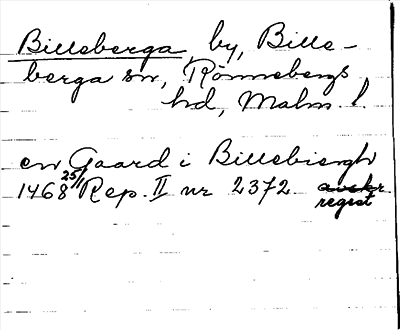 Billeberga, by, Bille-
berga sn, Rönnebergs
hd, Malm. l.
en Gaard i Billebiergh
1468 25/1 Rep. II nr 2372. avskr.
regist